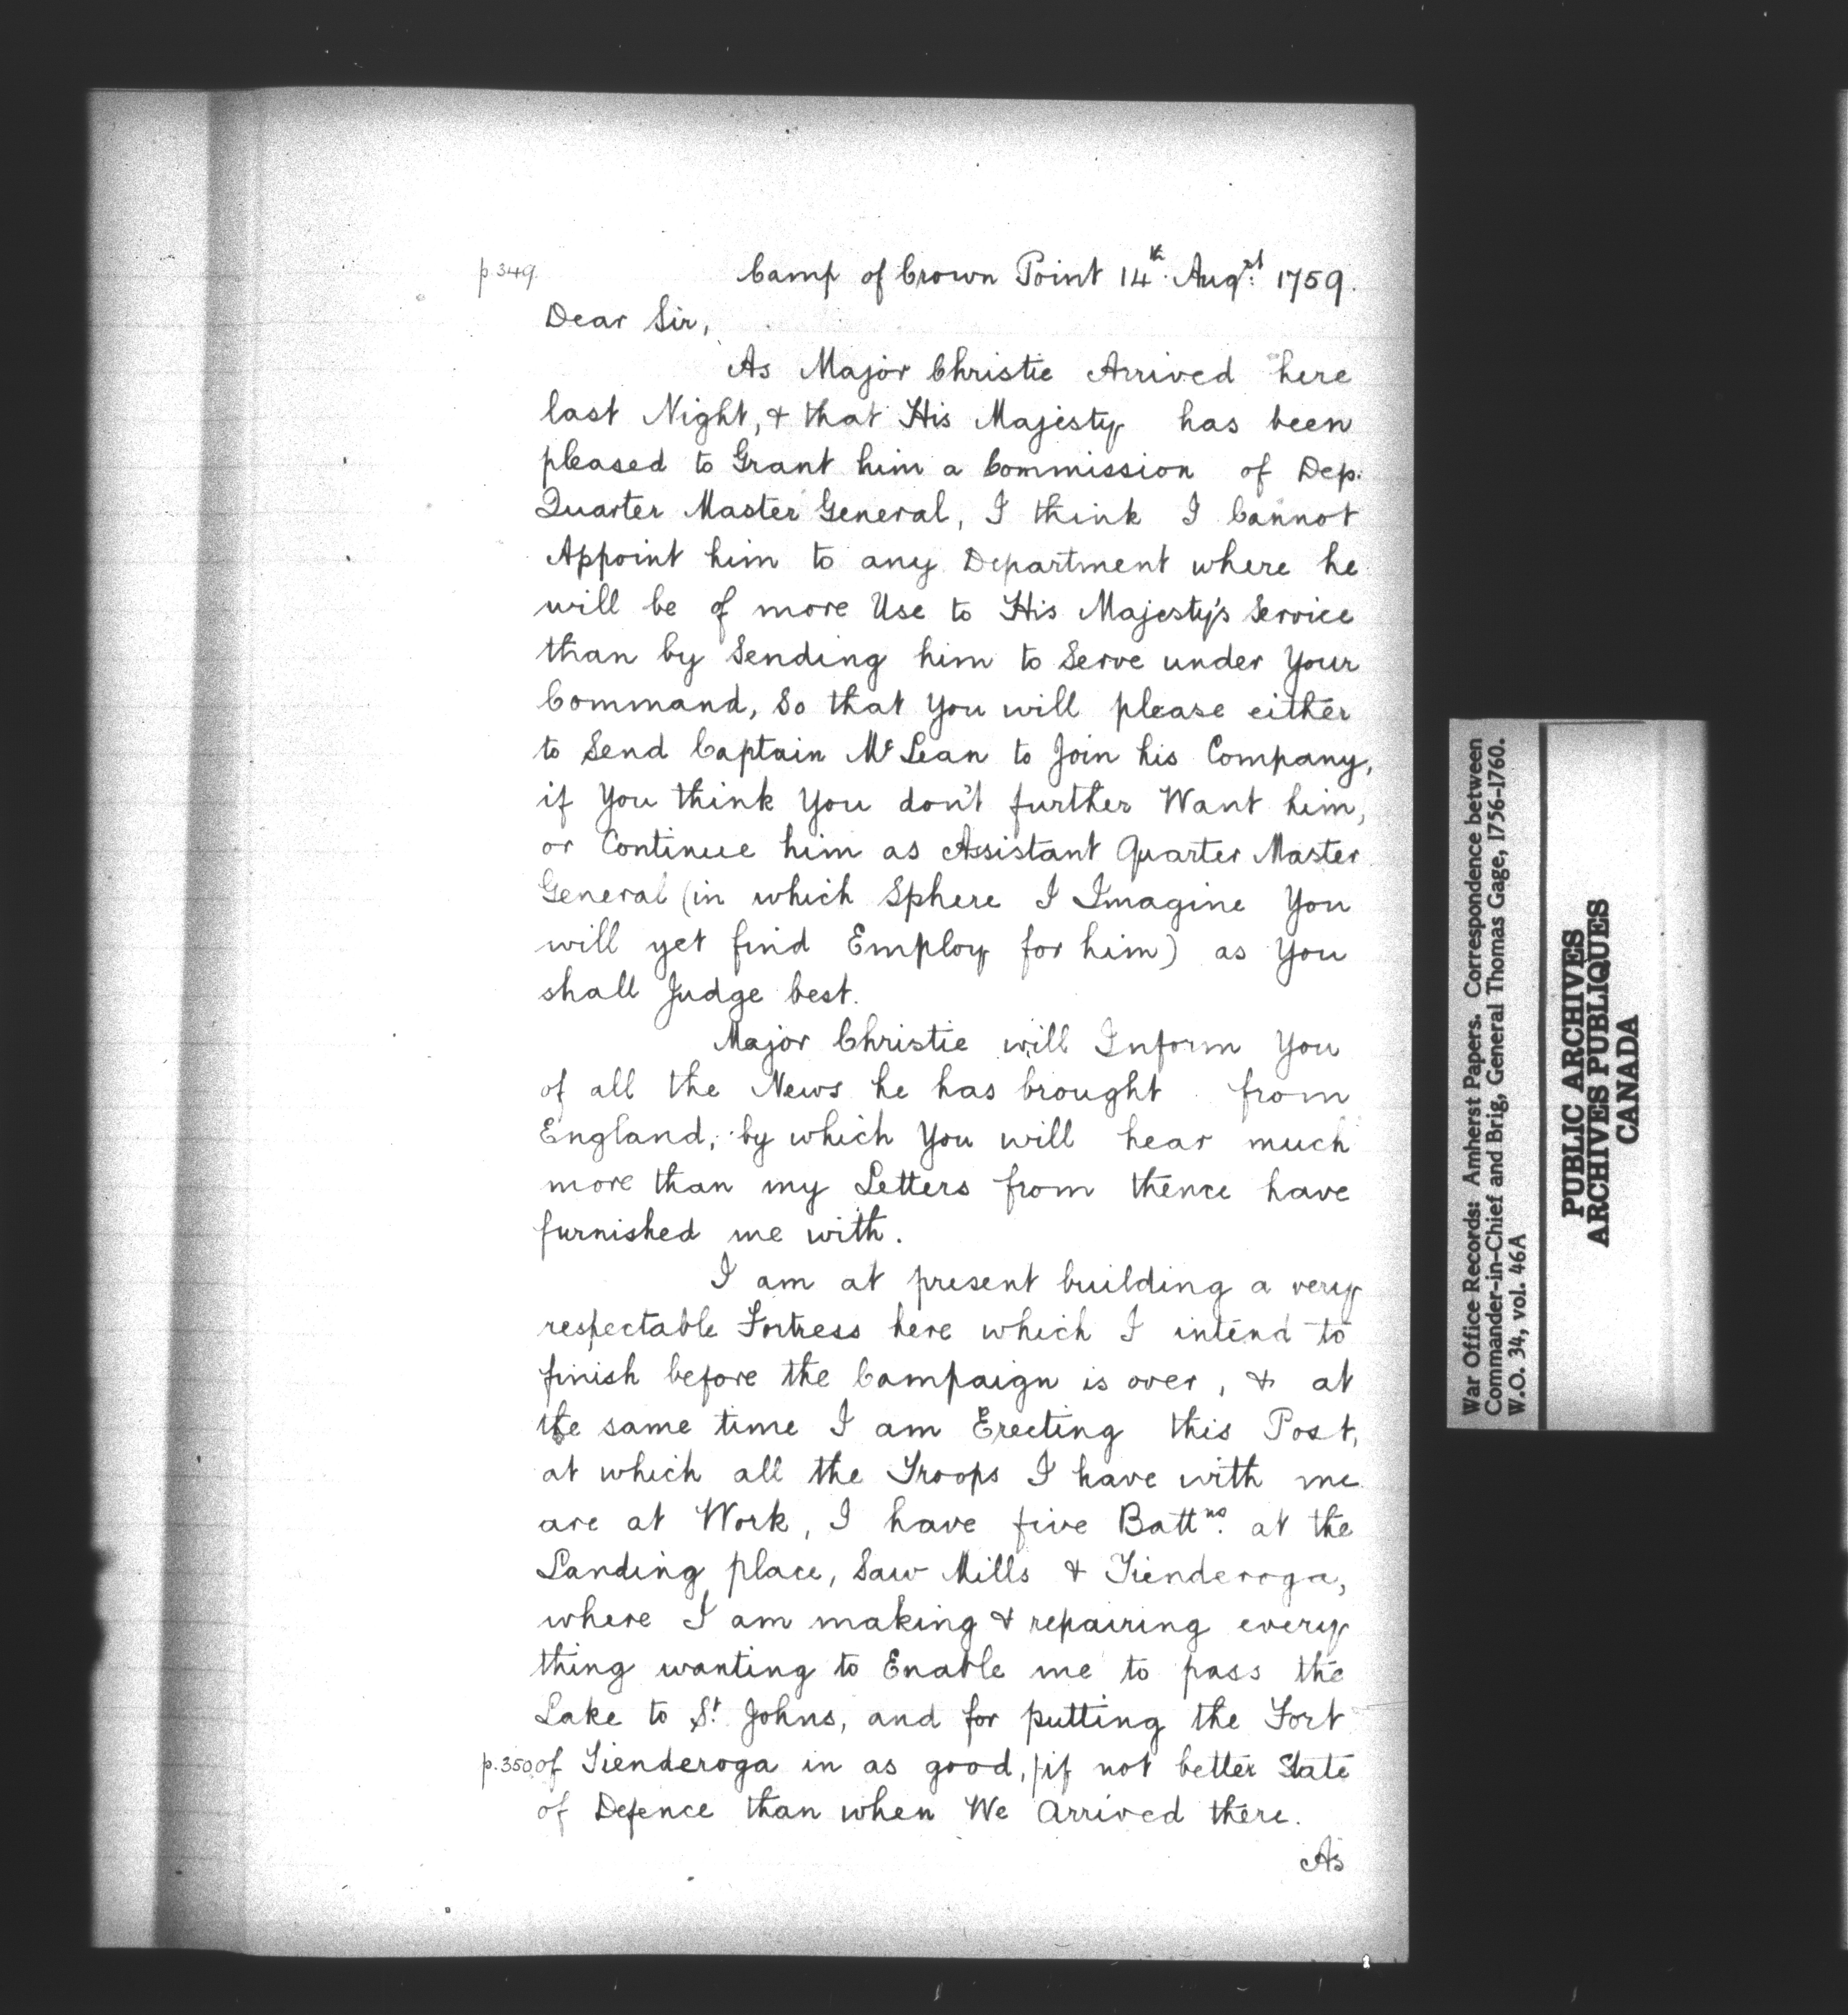 p.349.
Camp of Crown Point 14th. Augst. 1759.
Dear Sir,
As Major Christie Arrived here
last Night, & that His Majesty has been
pleased to Grant him a Commission of Dep:
Quarter Master General, I think I Cannot
Appoint him to any Department where he
will be of more Use to His Majesty's Service
than by Sending him to Serve under Your
Command, So that You will please either
to Send Captain Mc Lean to Join his Company,
if You think You don't further Want him,
or Continue him as Assistant Quarter Master
General (in which Sphere I Imagine You
will yet find Employ for him) as You
shall Judge best.
Major Christie will Inform You
of all the News he has brought from
England, by which You will hear much
more than my Letters from thence have
furnished me with.
I am at present building a very
respectable Fortress here which I intend to
finish before the Campaign is over, & at
the same time I am Erecting this Post,
at which all the Troops I have with me
are at Work, I have five Battns. at the
Landing place, Saw Mills & Tienderoga,
where I am making & repairing every
thing wanting to Enable me to pass the
Lake to St. Johns, and for putting the Fort
p.350 of Tienderoga in as good, /if not better State
of Defence than when We arrived there.
As
War Office Records: Amherst Papers. Correspondence between
Commander-in-Chief and Brig, General Thomas Gage, 1756-1760.
W.O. 34, vol. 46A
PUBLIC ARCHIVES
ARCHIVES PUBLIQUES
CANADA